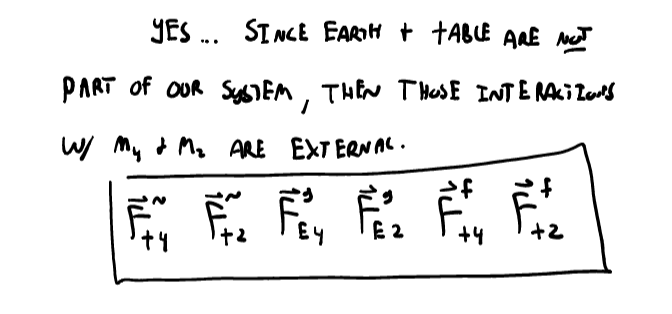 YES... SINCE EARTH + TABLE ARE NOT
PART OF OUR SYSTEM, THEN THOSE INTERACTIONS
W/ M₄ & M₂ ARE EXTERNAL.
F⃗ᴺₜ₄ F⃗ᴺₜ₂ F⃗ᵍ_E4 F⃗ᵍ_E2 F⃗ᶠₜ₄ F⃗ᶠₜ₂